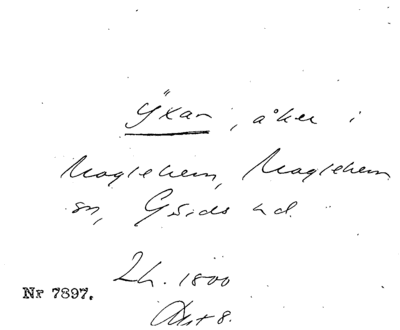 Ÿkar, åker i
Maglehem, Maglehem
sn, Gärds hd.
Lh. 1800
Akt 8.
Nr 7897.